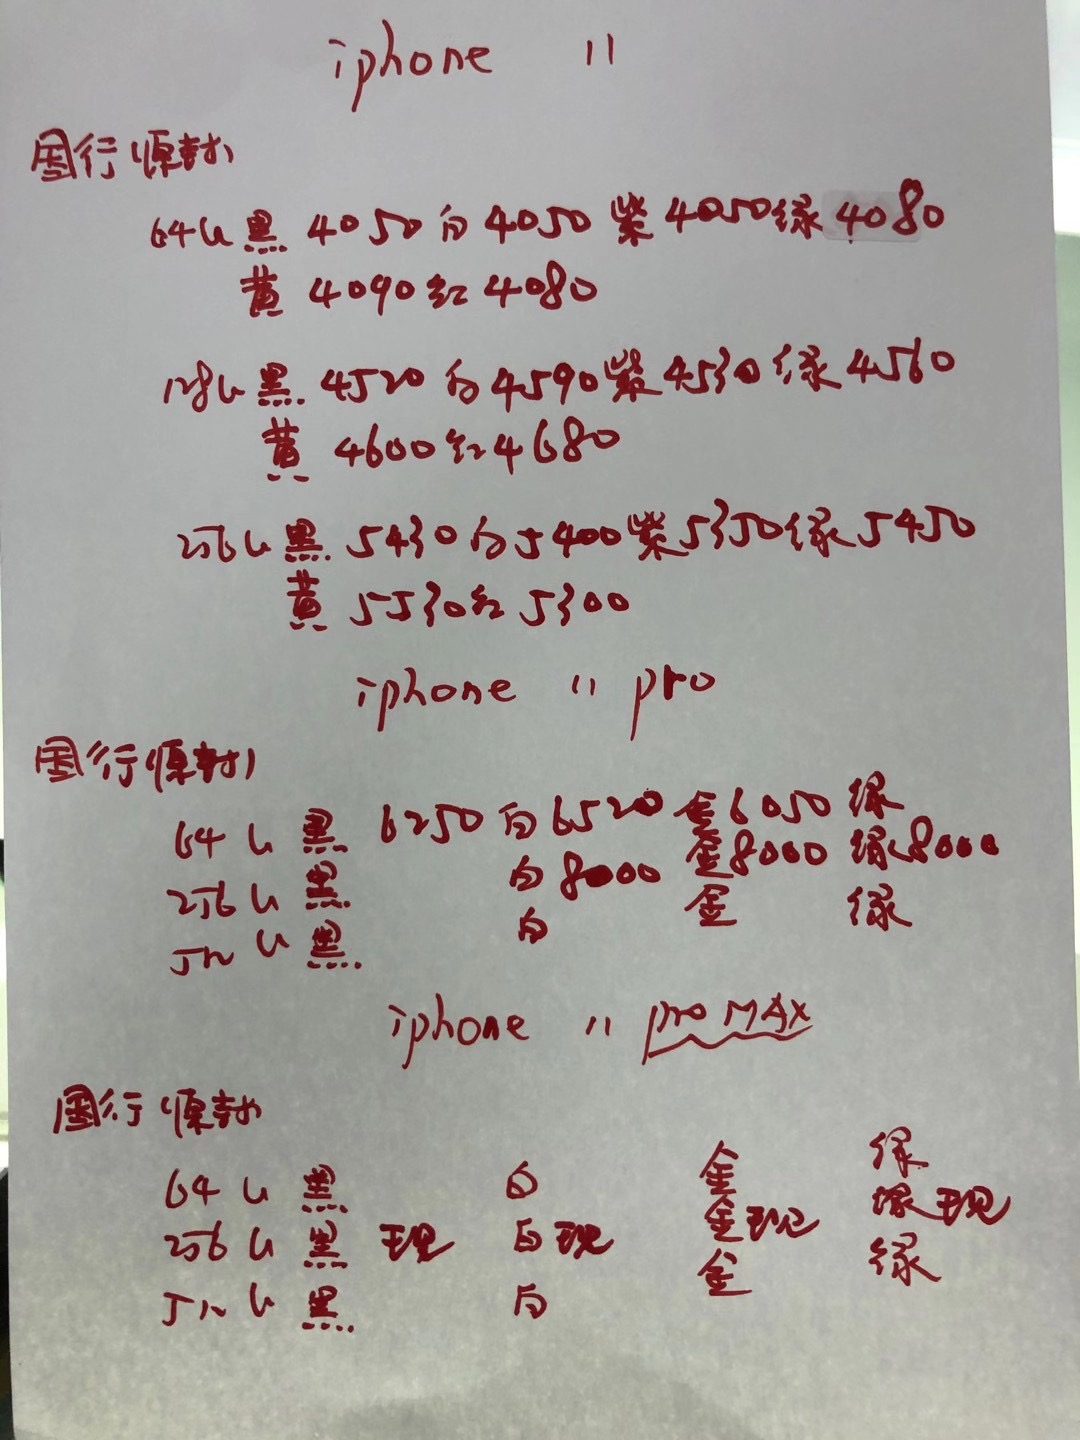 iphone 11
国行(原封)
64G 黑 4050 白 4050 紫 4050 绿 4080
黄 4090 红 4080
128G 黑 4520 白 4590 紫 4530 绿 4560
黄 4600 红 4680
256G 黑 5430 白 5400 紫 5350 绿 5450
黄 5530 红 5300
iphone 11 pro
国行(原封)
64G 黑 6250 白 6520 金 6050 绿
256G 黑 白 8000 金 8000 绿 8000
512G 黑 白 金 绿
iphone 11 pro MAX
国行(原封)
64G 黑 白 金 绿
256G 黑 现 白 现 金 现 绿 现
512G 黑 白 金 绿